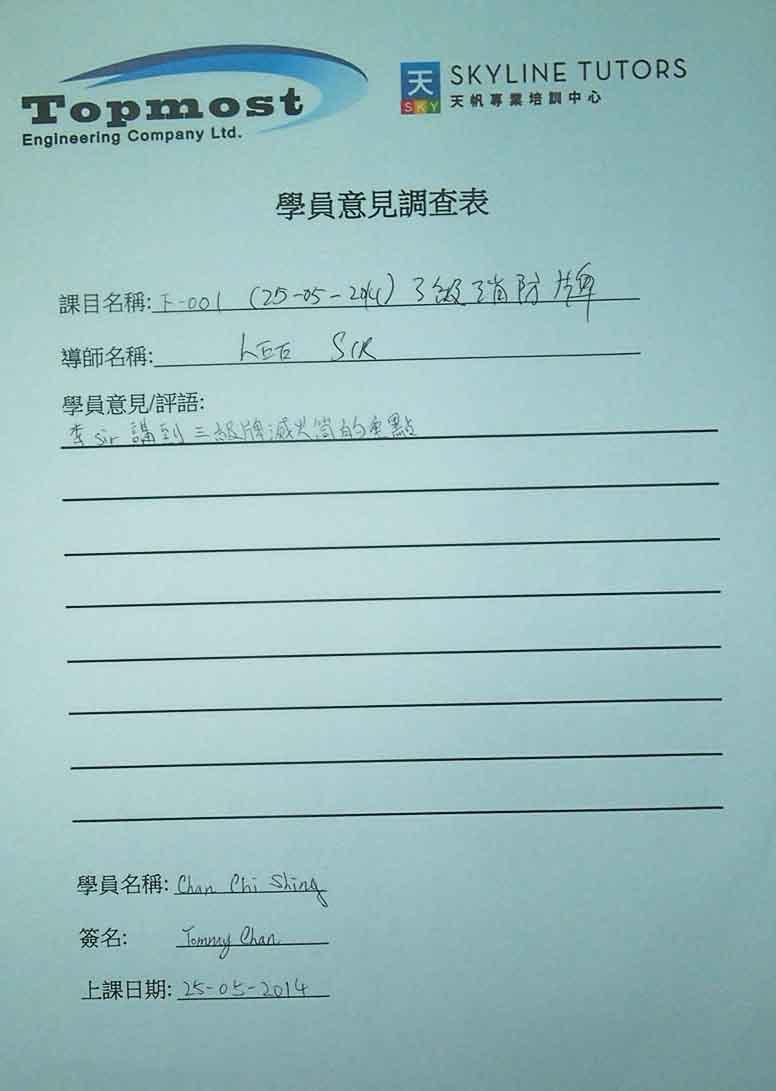 Topmost
Engineering Company Ltd.
天 SKY
SKYLINE TUTORS
天帆專業培訓中心
學員意見調查表
課目名稱: F-001 (25-05-2014) 3級消防牌
導師名稱: LEE SIR
學員意見/評語:
李sir 講到三級牌滅火筒的重點
學員名稱: Chan Chi Shing
簽名: Tommy Chan
上課日期: 25-05-2014